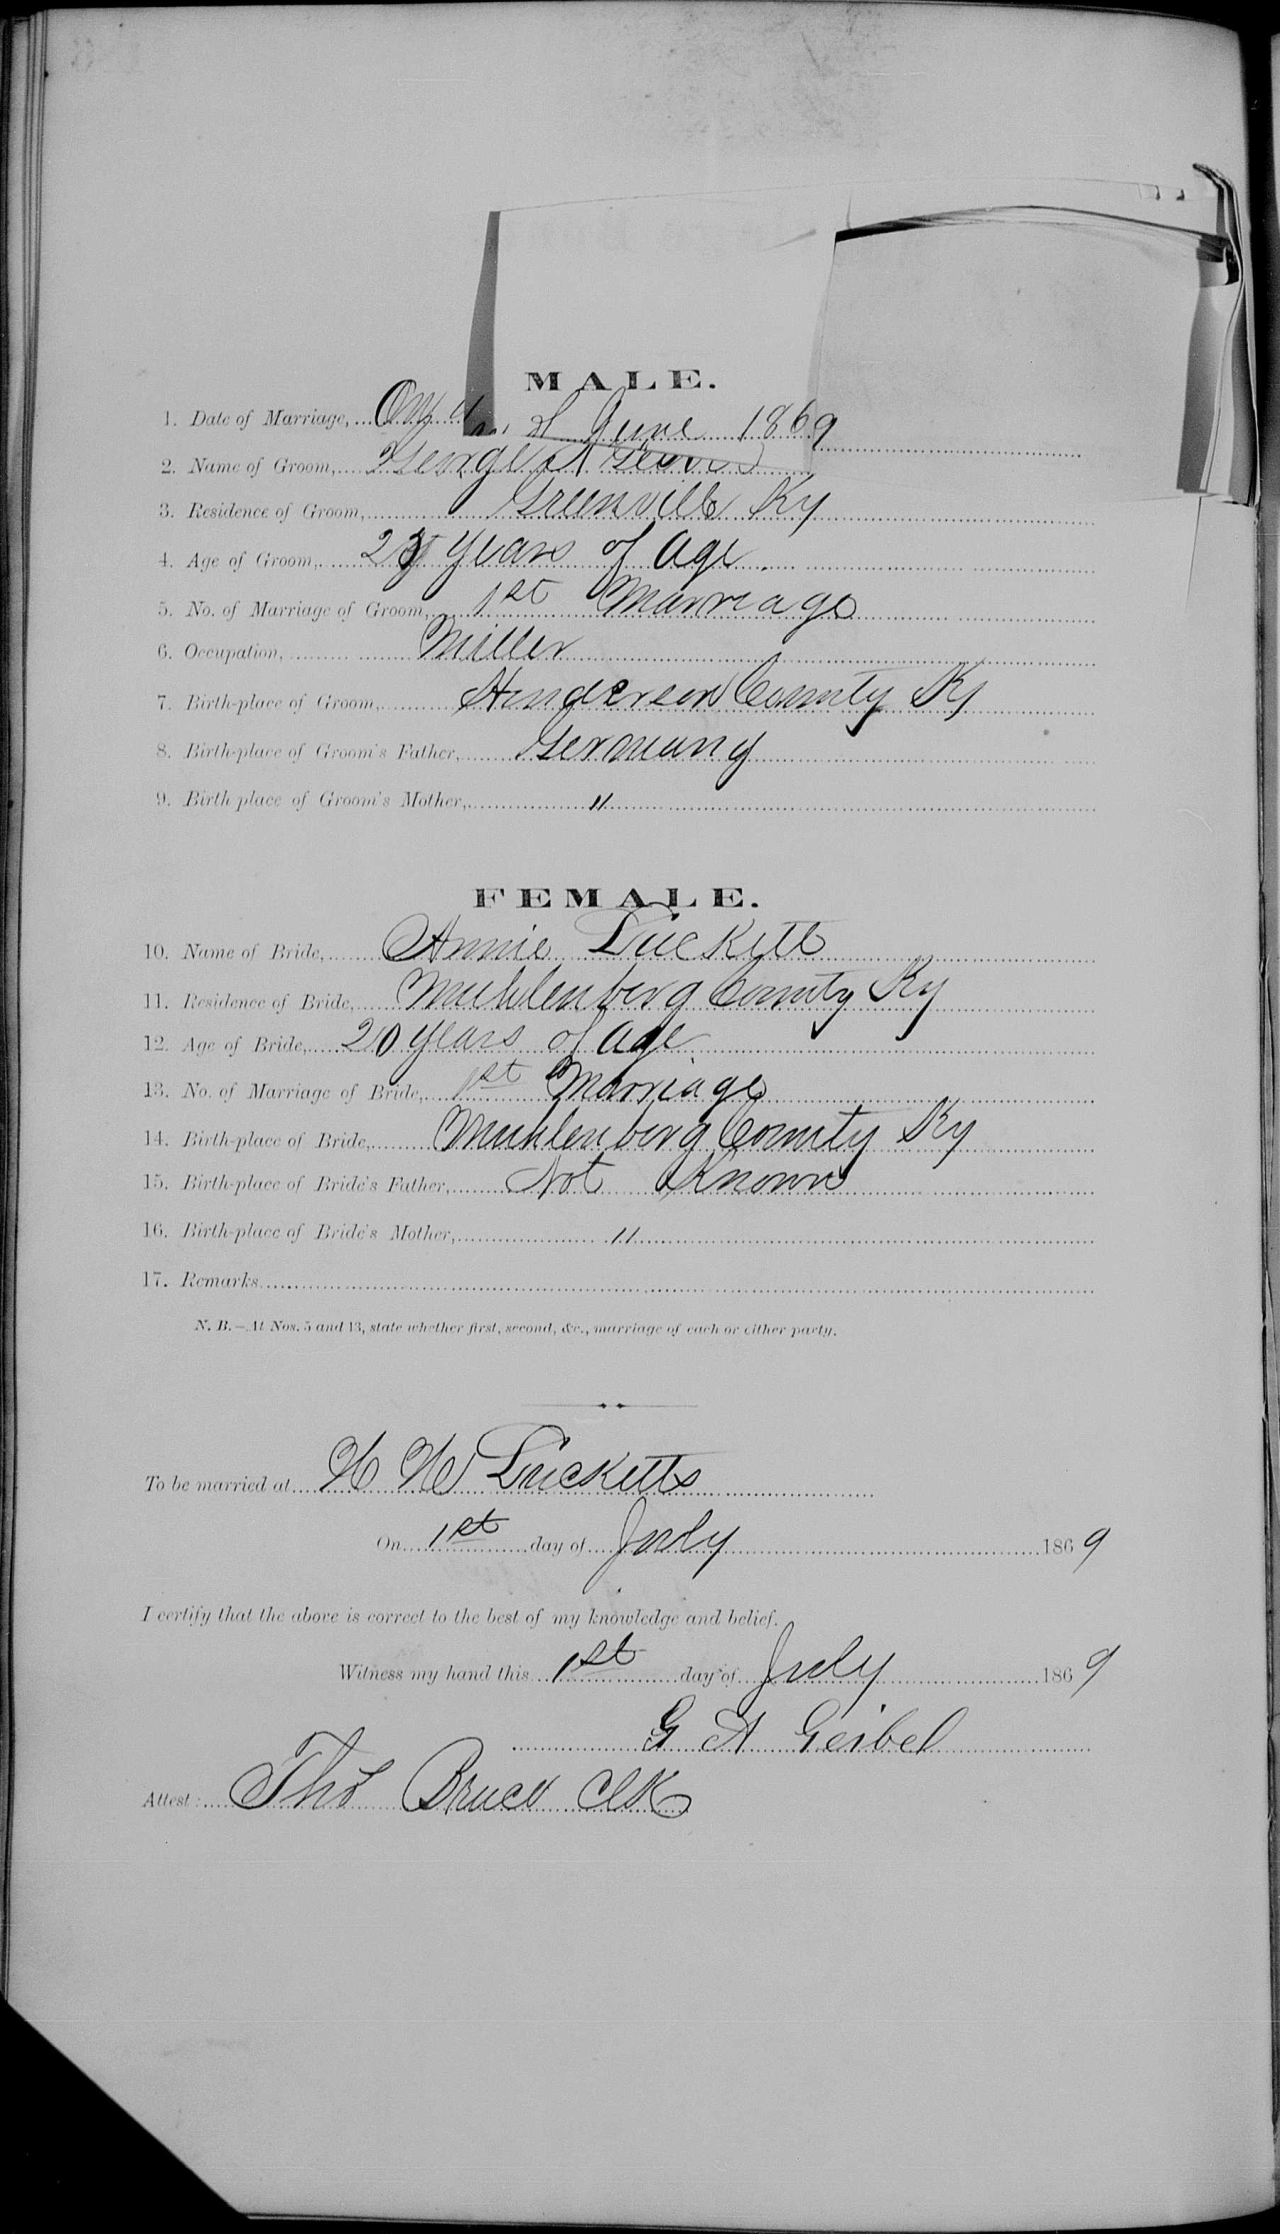 MALE.
1. Date of Marriage, On June 1869
2. Name of Groom, George A
3. Residence of Groom, Greenville Ky
4. Age of Groom, years of age.
5. No. of Marriage of Groom, 1st Marriage
6. Occupation, Miller
7. Birth-place of Groom, Henderson County Ky
8. Birth-place of Groom's Father, Germany
9. Birth place of Groom's Mother, "
FEMALE.
10. Name of Bride, Annie Luckett
11. Residence of Bride, Muhlenberg County Ky
12. Age of Bride, 20 years of age
13. No. of Marriage of Bride, 1st Marriage
14. Birth-place of Bride, Muhlenberg County Ky
15. Birth-place of Bride's Father, Not Known
16. Birth-place of Bride's Mother, "
17. Remarks
N. B.—At Nos. 5 and 13, state whether first, second, &c., marriage of each or either party.
To be married at Lucketts
On 1st day of July 1869
I certify that the above is correct to the best of my knowledge and belief.
Witness my hand this 1st day of July 1869
G A Geibel
Attest: Thos Bruce Clk